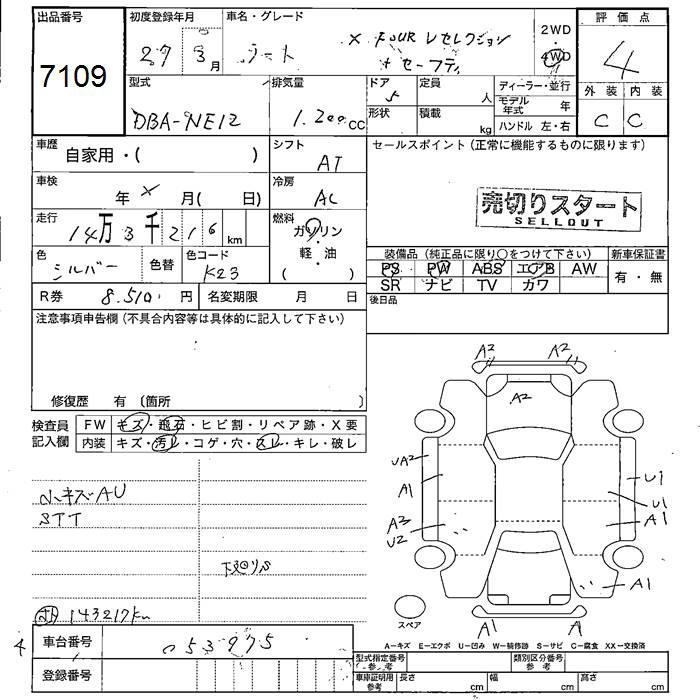 出品番号
7109
初度登録年月
27 3月
車名・グレード
ノート
X FOUR Vセレクション
+セーフティ
2WD
・
4WD
評価点
4
外装 内装
C C
型式
DBA-NE12
排気量
1.200cc
ドア
5
形状
定員
人
積載
kg
ディーラー・並行
モデル年式 年
ハンドル 左・右
車歴
自家用・( )
シフト
AT
セールスポイント (正常に機能するものに限ります)
車検
年 X 月( 日)
冷房
AC
売切りスタート
SELLOUT
走行
14万3千216km
燃料
ガソリン
・
軽・油
( )
色
シルバー
色替
色コード
K23
装備品 (純正品に限り○をつけて下さい)
新車保証書
PS PW ABS エアB AW
SR ナビ TV カワ
有・無
R券 8.510円
名変期限 月 日
後日品
注意事項申告欄 (不具合内容等は具体的に記入して下さい)
修復歴 有 (箇所 )
検査員
記入欄
FW キズ・飛石・ヒビ割・リペア跡・X要
内装 キズ・汚レ・コゲ・穴・スレ・キレ・破レ
小キズAU
STT
下廻りS
143217km
A2 A2
A2
UA2
A1
A2
U2
U1
U1
A1
A1
A1 A
スペア
A−キズ E−エクボ U−凹み W−補修跡 S−サビ C−腐食 XX−交換済
4
車台番号 053975
登録番号
型式指定番号
参考
類別区分番号
参考
車庫証明用
参考
長さ cm
幅 cm
高さ cm